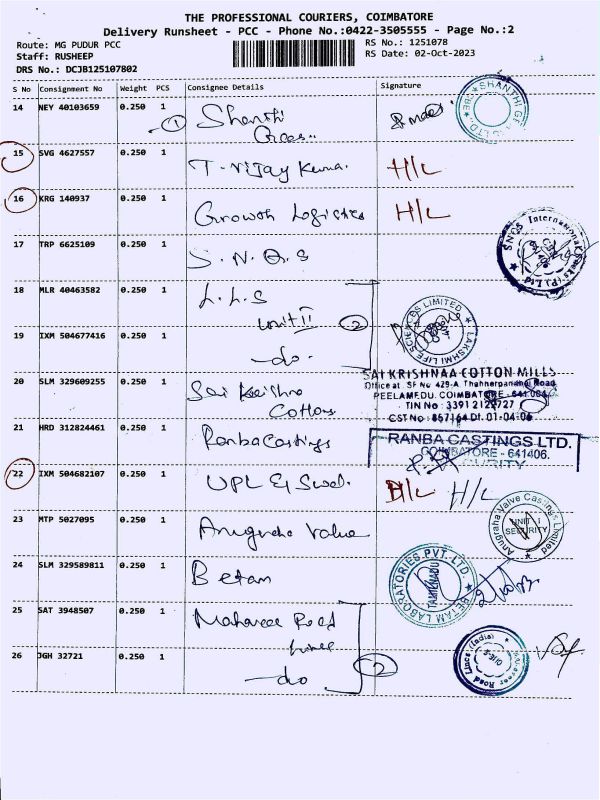 THE PROFESSIONAL COURIERS, COIMBATORE
Delivery Runsheet - PCC - Phone No.:0422-3505555 - Page No.:2
Route: MG PUDUR PCC
RS No.: 1251078
Staff: RUSHEEP
RS Date: 02-Oct-2023
DRS No.: DCJB125107802
S No Consignment No Weight PCS Consignee Details Signature
14 NEY 40103659 0.250 1 Shanthi
1
SHANTHI
15 SVG 4627557 0.250 1 T. Vijay H/L
16 KRG 140937 0.250 1 Growth Logistics H/L
17 TRP 6625109 0.250 1 S.N.Q.S
SNQS International (P) Ltd
18 MLR 40463582 0.250 1 L.L.S
Unit II 2
LAKSHMI LIFE SCIENCES LIMITED
19 IXM 504677416 0.250 1 -do-
20 SLM 329609255 0.250 1 Sai Krishna
Cottons
SAI KRISHNAA COTTON MILLS
Office at. SF No 429-A Road
PEELAMEDU. COIMBATORE - 641 004
TIN No : 3391 2122727
CST No : 857164 Dt. 01-04-06
21 HRD 312824461 0.250 1 Ranba Castings
RANBA CASTINGS LTD.
COIMBATORE - 641406.
SECURITY
22 IXM 504682107 0.250 1 UPL H/L H/L
23 MTP 5027095 0.250 1 Anugraha Valve
Anugraha Valve Castings Limited
UNIT - I
SECURITY
24 SLM 329589811 0.250 1 Betam
BETAM LABORATORIES PVT. LTD.
TAMILNADU
25 SAT 3948507 0.250 1 Road
Road Lines (India)
26 JGH 32721 0.250 1 -do 2